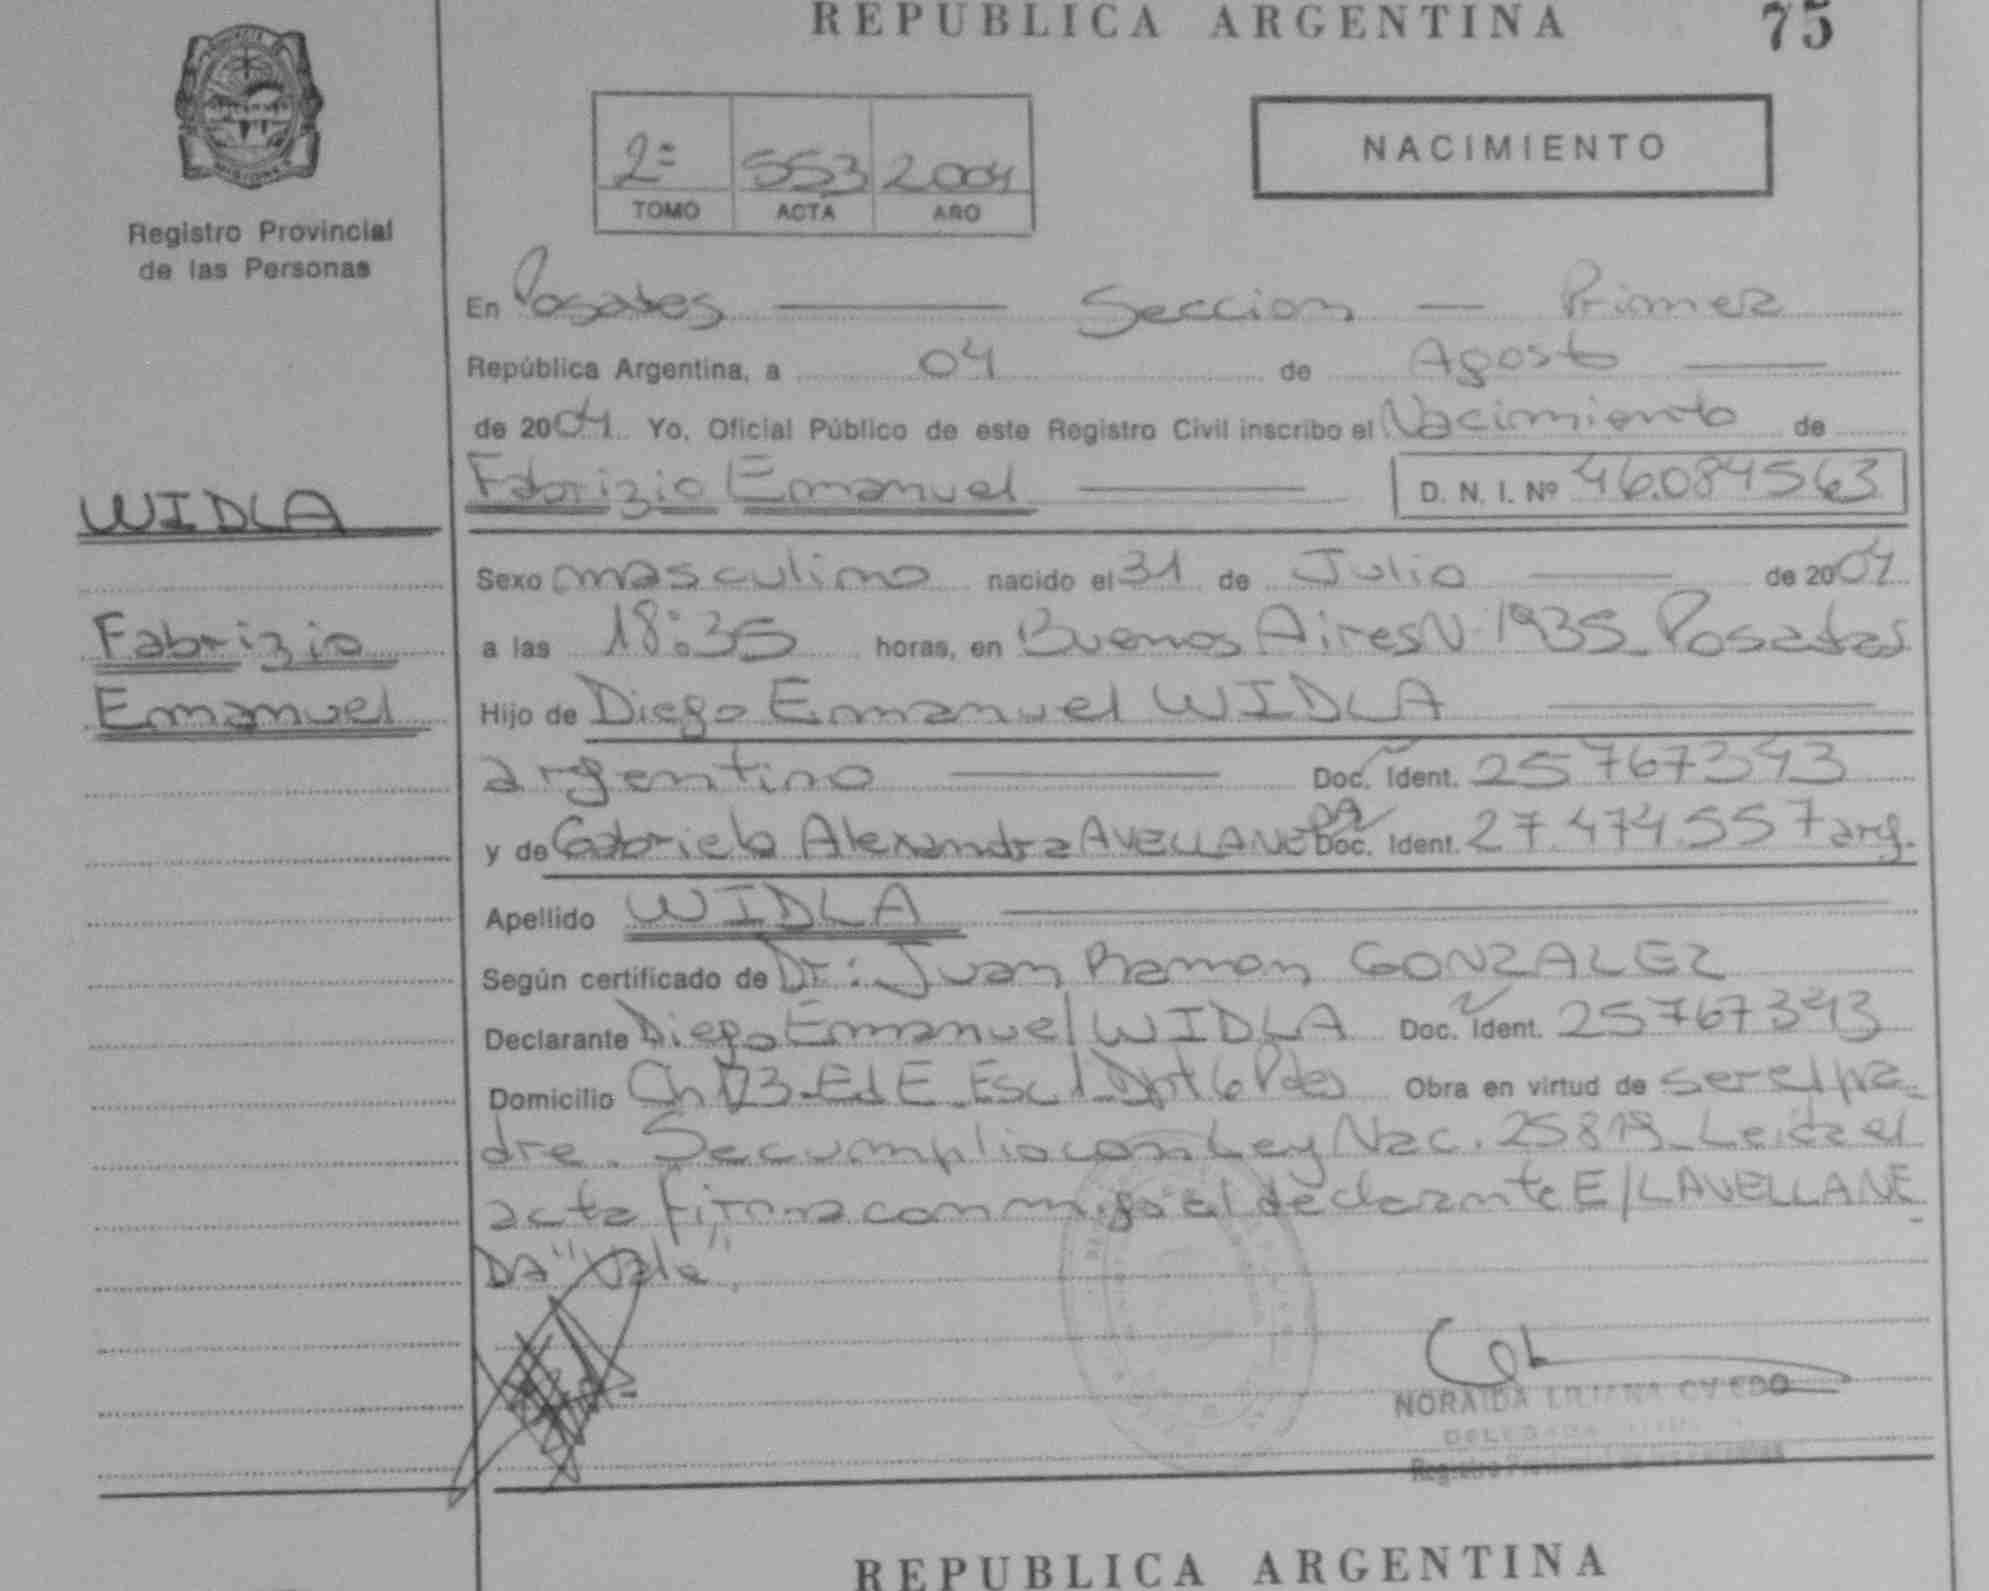 REPUBLICA ARGENTINA 75
2º 553 2004
TOMO ACTA AÑO
NACIMIENTO
Registro Provincial
de las Personas
En Posadas Seccion Primera
República Argentina, a 04 de Agosto
de 2004 Yo, Oficial Público de este Registro Civil inscribo el Nacimiento de
Fabrizio Emanuel D. N. I. Nº 46.084563
WIDLA
Sexo masculino nacido el 31 de Julio de 2004
Fabrizio
a las 18:35 horas, en Buenos Aires Nº 1935 Posadas
Emanuel
Hijo de Diego Emmanuel WIDLA
argentino Doc. Ident. 25767343
y de Gabriela Alexandra AVELLANEDA Doc. Ident. 27.474.557 arg.
Apellido WIDLA
Según certificado de Dr: Juan Ramon GONZALEZ
Declarante Diego Emmanuel WIDLA Doc. Ident. 25767343
Domicilio Ch 173 Ed E Esc 1 Dpt 6 Pdas Obra en virtud de ser el pa
dre. Se cumplio con Ley Nac. 25819 Leida el
acta firma conmigo el declarante E/L AVELLANE
DA "Vale"
NORAIDA LILIANA OVIEDO
DELEGADA
Registro Provincial de las Personas
REPUBLICA ARGENTINA